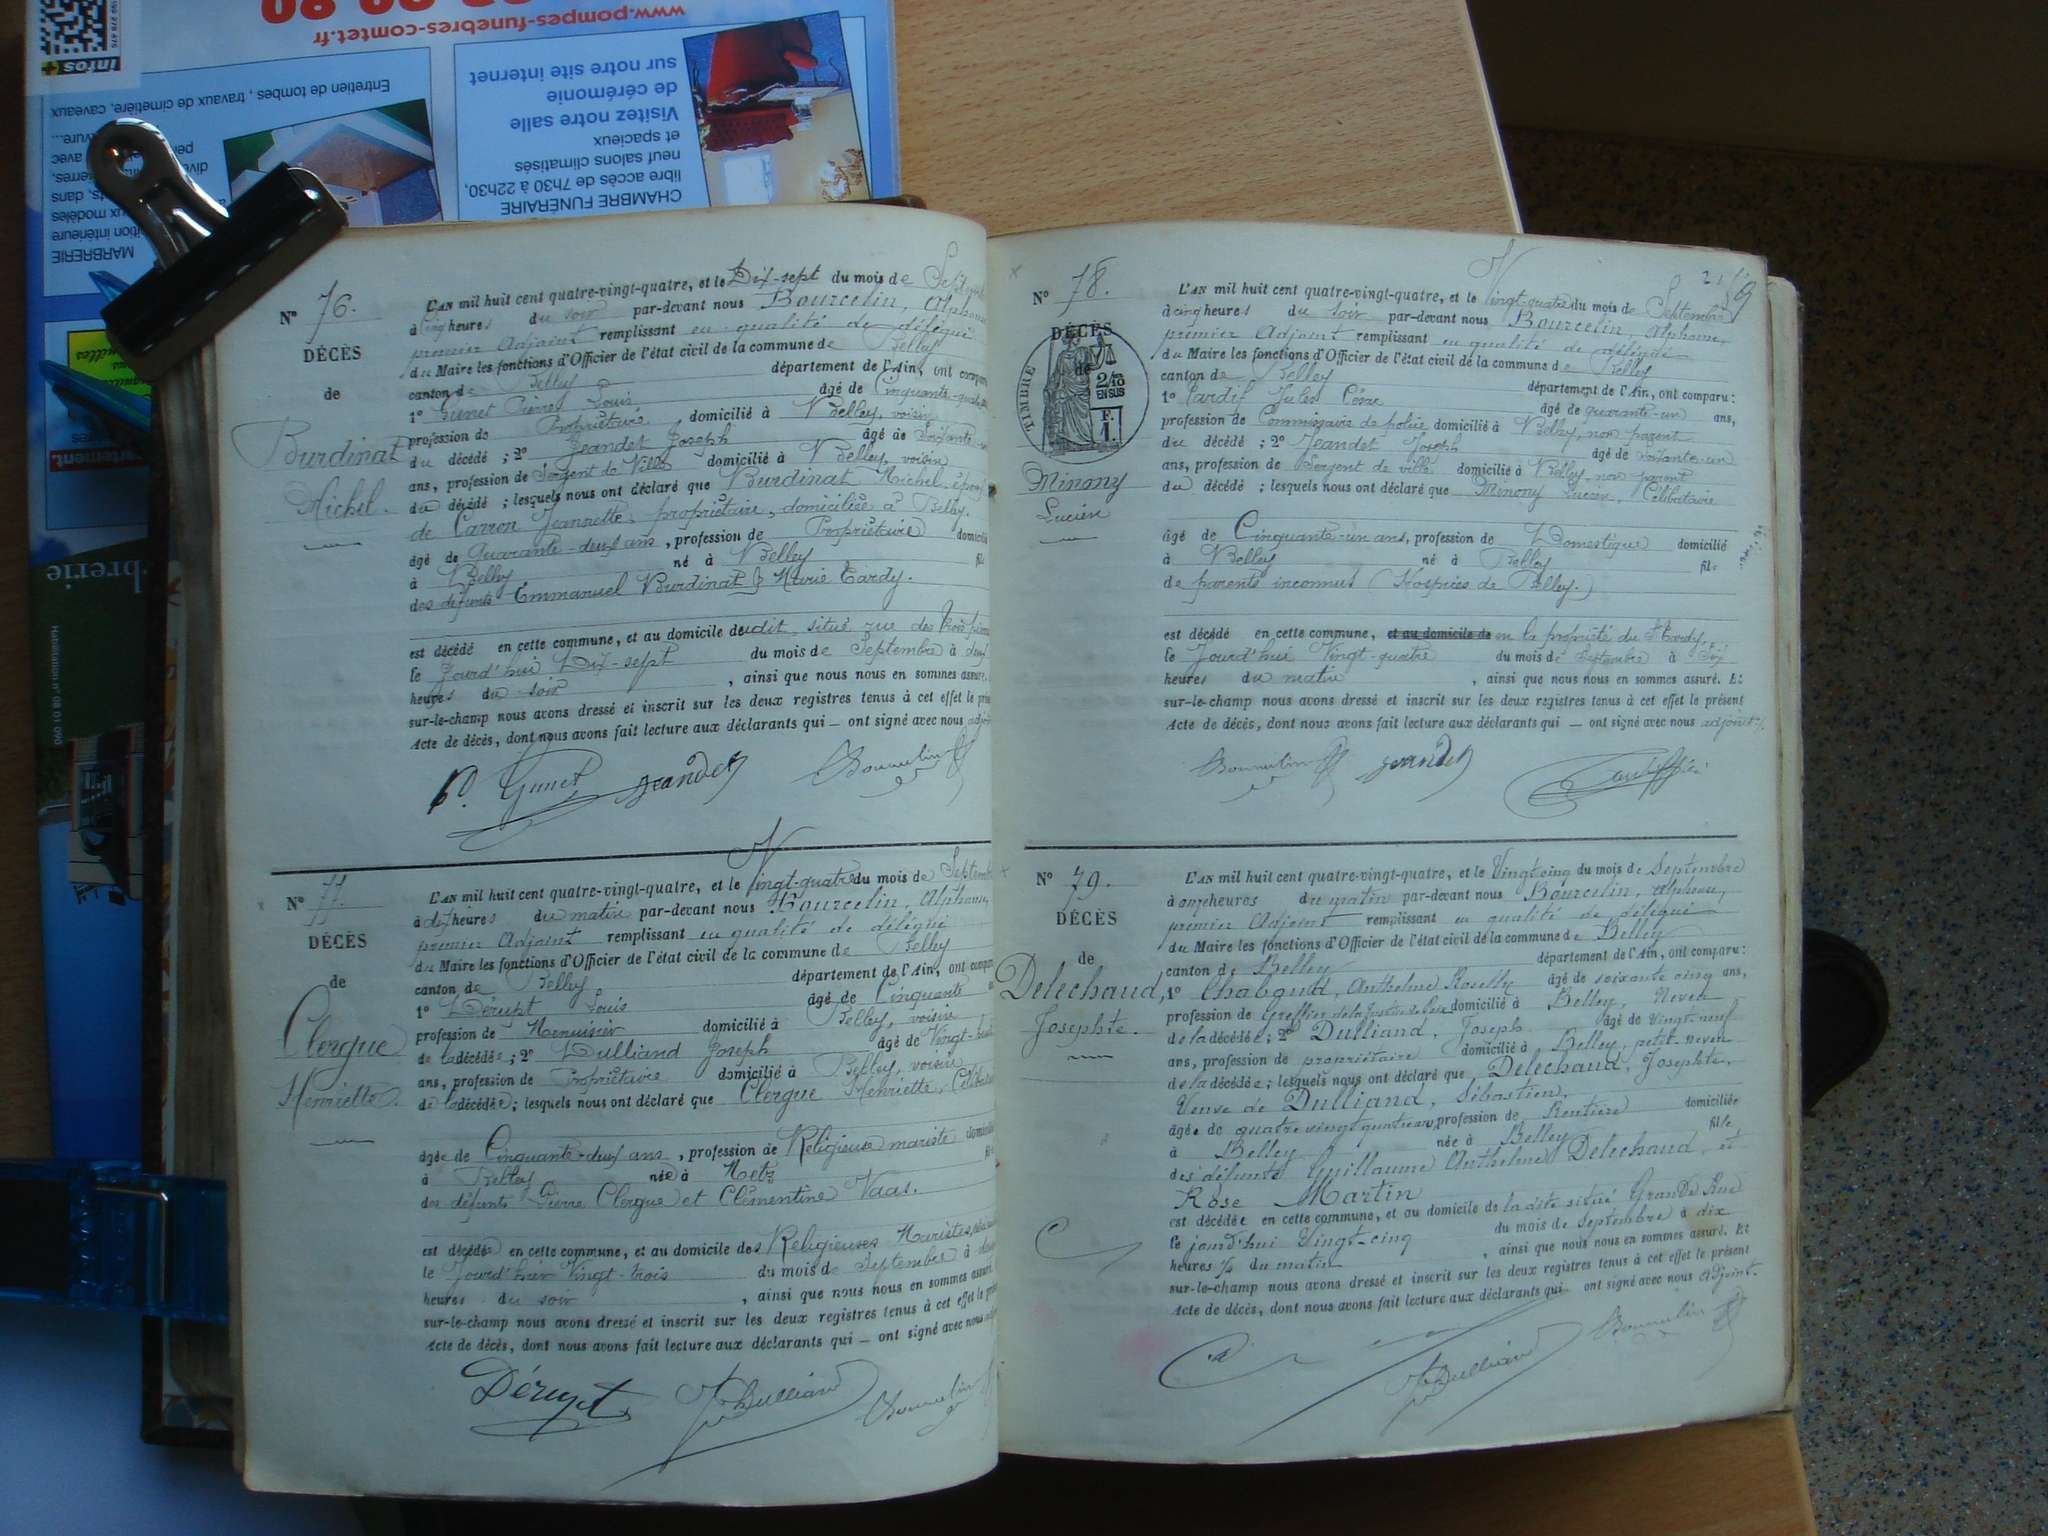 www.pompes-funebres-comtet.fr
infos+
Entretien de tombes, travaux de cimetière, caveaux
Visitez notre salle
de cérémonie
sur notre site internet
CHAMBRE FUNÉRAIRE
libre accès de 7h30 à 22h30,
neuf salons climatisés
et spacieux
MARBRERIE
Habilitation n° 08 01 090
N° 76.
DÉCÈS
de
Burdinat
Michel.
L'AN mil huit cent quatre-vingt-quatre, et le Dix-sept du mois de
à cinq heures du soir par-devant nous Bourcelin, Alphonse
premier Adjoint remplissant en qualité de délégué
du Maire les fonctions d'Officier de l'état civil de la commune de Belley
canton de Belley département de l'Ain, ont
1° Pierre Louis âgé de
profession de Propriétaire domicilié à Belley, voisin
du décédé ; 2° Jeandet Joseph âgé de
ans, profession de Sergent de Ville domicilié à Belley, voisin
du décédé ; lesquels nous ont déclaré que Burdinat Michel, époux
de Carron Jeannette, propriétaire, domiciliée à Belley.
âgé de Quarante-deux ans, profession de Propriétaire domicilié
à Belley né à Belley fils
des défunts Emmanuel Burdinat & Marie Tardy.
est décédé en cette commune, et au domicile dudit, situé rue des
le Jourd'hui Dix-sept du mois de Septembre à deux
heures du soir, ainsi que nous nous en sommes assuré.
sur-le-champ nous avons dressé et inscrit sur les deux registres tenus à cet effet le
Acte de décès, dont nous avons fait lecture aux déclarants qui — ont signé avec nous
Jeandet
N° 77.
DÉCÈS
de
Clergue
Henriette.
L'AN mil huit cent quatre-vingt-quatre, et le Vingt-quatre du mois de
à dix heures du matin par-devant nous Bourcelin, Alphonse,
premier Adjoint remplissant en qualité de délégué
du Maire les fonctions d'Officier de l'état civil de la commune de Belley
canton de Belley département de l'Ain, ont
1° Dérupt Louis âgé de Cinquante
profession de Menuisier domicilié à Belley, voisin
de la décédée ; 2° Dulliand Joseph âgé de
ans, profession de Propriétaire domicilié à Belley, voisin
de la décédée ; lesquels nous ont déclaré que Clergue Henriette,
âgée de Cinquante-deux ans, profession de Religieuse mariste
à Belley née à Metz
des défunts Pierre Clergue et Clémentine Vaas.
est décédée en cette commune, et au domicile des Religieuses Maristes,
le Jourd'hier Vingt-trois du mois de Septembre à
heures du soir, ainsi que nous nous en sommes assuré.
sur-le-champ nous avons dressé et inscrit sur les deux registres tenus à cet effet le
Acte de décès, dont nous avons fait lecture aux déclarants qui — ont signé avec nous
Dérupt Dulliand
N° 78.
DÉCÈS
de
TIMBRE
2/10
EN SUS
F.
1.
Minony
Lucien
L'AN mil huit cent quatre-vingt-quatre, et le Vingt-quatre du mois de Septembre
à cinq heures du soir par-devant nous Bourcelin, Alphonse,
premier Adjoint remplissant en qualité de délégué
du Maire les fonctions d'Officier de l'état civil de la commune de Belley
canton de Belley département de l'Ain, ont comparu :
1° Tardif Jules César âgé de quarante-un ans,
profession de Commissaire de police domicilié à Belley, non parent
du décédé ; 2° Jeandet Joseph âgé de soixante-un
ans, profession de Sergent de ville domicilié à Belley, non parent
du décédé ; lesquels nous ont déclaré que Minony Lucien, Célibataire
âgé de Cinquante-un ans, profession de Domestique domicilié
à Belley né à Belley fils
de parents inconnus (Hospices de Belley.)
est décédé en cette commune, et au domicile de en la propriété du Sr Tardy,
le Jourd'hui Vingt-quatre du mois de Septembre à Six
heures du matin, ainsi que nous nous en sommes assuré. Et
sur-le-champ nous avons dressé et inscrit sur les deux registres tenus à cet effet le présent
Acte de décès, dont nous avons fait lecture aux déclarants qui — ont signé avec nous adjoint.
Jeandet
N° 79.
DÉCÈS
de
Delechaud,
Josephte.
L'AN mil huit cent quatre-vingt-quatre, et le Vingt cinq du mois de Septembre
à onze heures du matin par-devant nous Bourcelin, Alphonse,
premier Adjoint remplissant en qualité de délégué
du Maire les fonctions d'Officier de l'état civil de la commune de Belley
canton de Belley département de l'Ain, ont comparu :
1° Chaboud, Anthelme âgé de soixante cinq ans,
profession de Greffier de la Justice de Paix domicilié à Belley, Neveu
de la décédée ; 2° Dulliand, Joseph âgé de vingt neuf
ans, profession de propriétaire domicilié à Belley, petit neveu
de la décédée ; lesquels nous ont déclaré que Delechaud, Josephte,
Veuve de Dulliand, Sébastien,
âgée de quatre vingt quatre ans, profession de Rentière domiciliée
à Belley née à Belley fille
des défunts Guillaume Anthelme Delechaud, et
Rose Martin
est décédée en cette commune, et au domicile de la dite situé Grande Rue
le jourd'hui Vingt-cinq du mois de septembre à dix
heures ½ du matin, ainsi que nous nous en sommes assuré. Et
sur-le-champ nous avons dressé et inscrit sur les deux registres tenus à cet effet le présent
Acte de décès, dont nous avons fait lecture aux déclarants qui ont signé avec nous Adjoint.
Dulliand